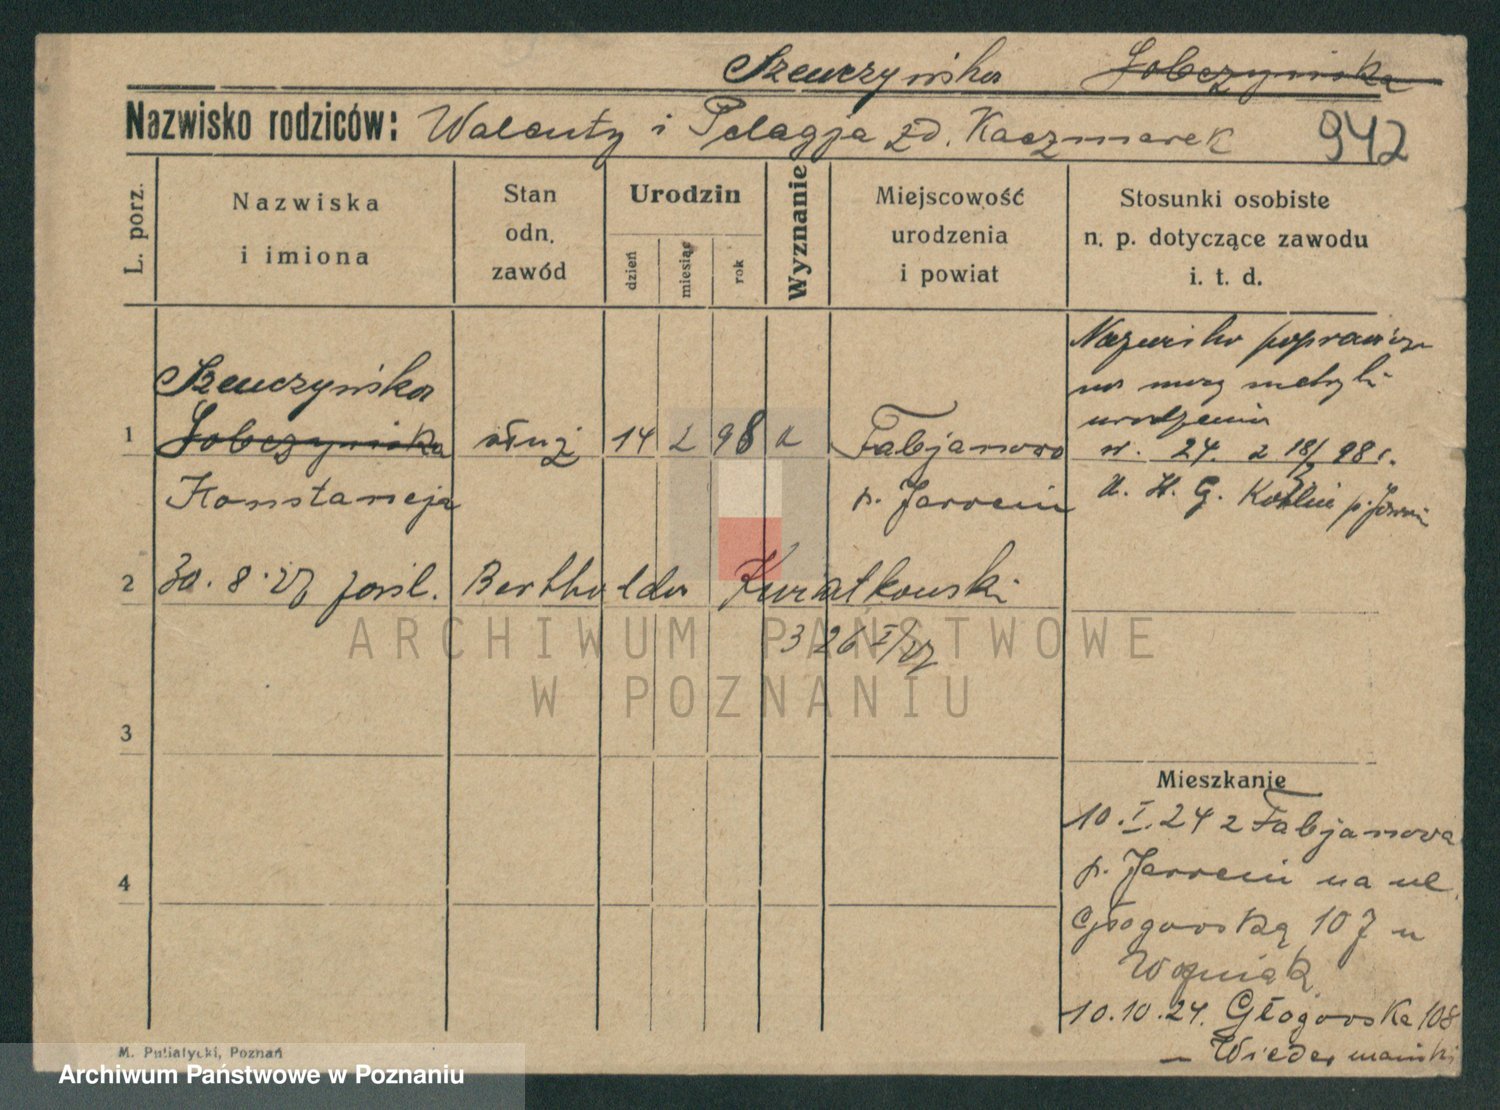 Szewczyńska Sobczyńska
Nazwisko rodziców: Walenty i Pelagja zd. Kaczmarek 942
L. porz.
Nazwiska
i imiona
Stan
odn.
zawód
Urodzin
dzień
miesiąc
rok
Wyznanie
Miejscowość
urodzenia
i powiat
Stosunki osobiste
n. p. dotyczące zawodu
i. t. d.
Szewczyńska
1 Sobczyńska służ 14 2 98 k Fabjanowo
Konstancja p. Jarocin
Nazwisko
na mocy metryki
urodzenia
nr. 24. z 18/2 98 r.
U. S. C. Kotlin p. Jarocin
2 30. 8. 27 pośl. Kwiatkowski
3 26 I/27
ARCHIWUM PAŃSTWOWE
W POZNANIU
3
4
Mieszkanie
10. I. 24 z Fabjanowa
p. Jarocin na ul.
Głogowską 107 u
Woźniak
10.10.24. Głogowska 108
M. Putiatycki, Poznań
Archiwum Państwowe w Poznaniu